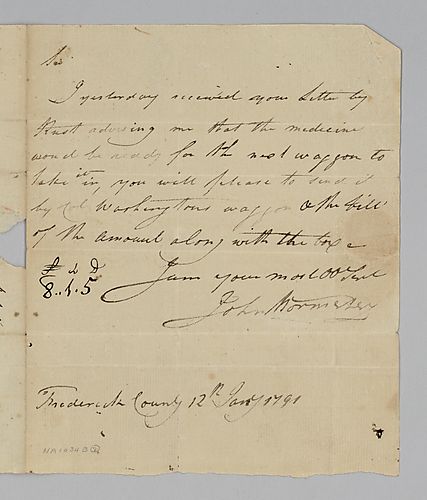 Sir
I yesterday received your letter by
Rust advising me that the medicine
would be ready for the next waggon to
take it in, you will please to send it
by Col Washingtons waggon & the bill
of the amount along with the box
£ S D
8.1.5
I am your most Obt Servt
John Wormeley
Frederick County 12th Jany 1791